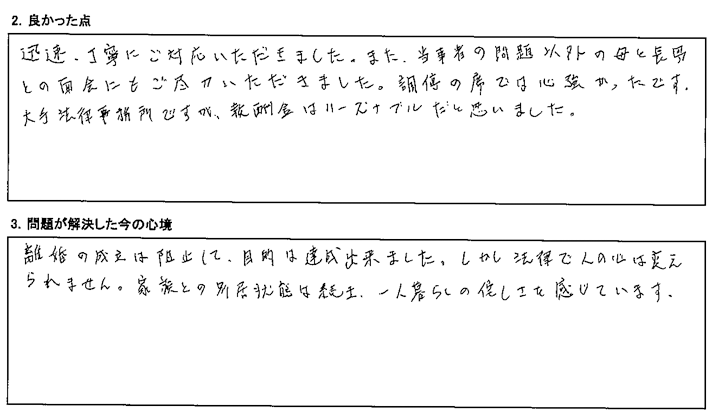 2. 良かった点
迅速、丁寧にご対応いただきました。また、当事者の問題以外の母と長男
との面会にもご尽力いただきました。調停の席では心強かったです。
大手法律事務所ですが、報酬金はリーズナブルだと思いました。
3. 問題が解決した今の心境
離婚の成立は阻止して、目的は達成出来ました。しかし法律で人の心は変え
られません。家族との別居状態は続き、一人暮らしの侘しさを感じています。